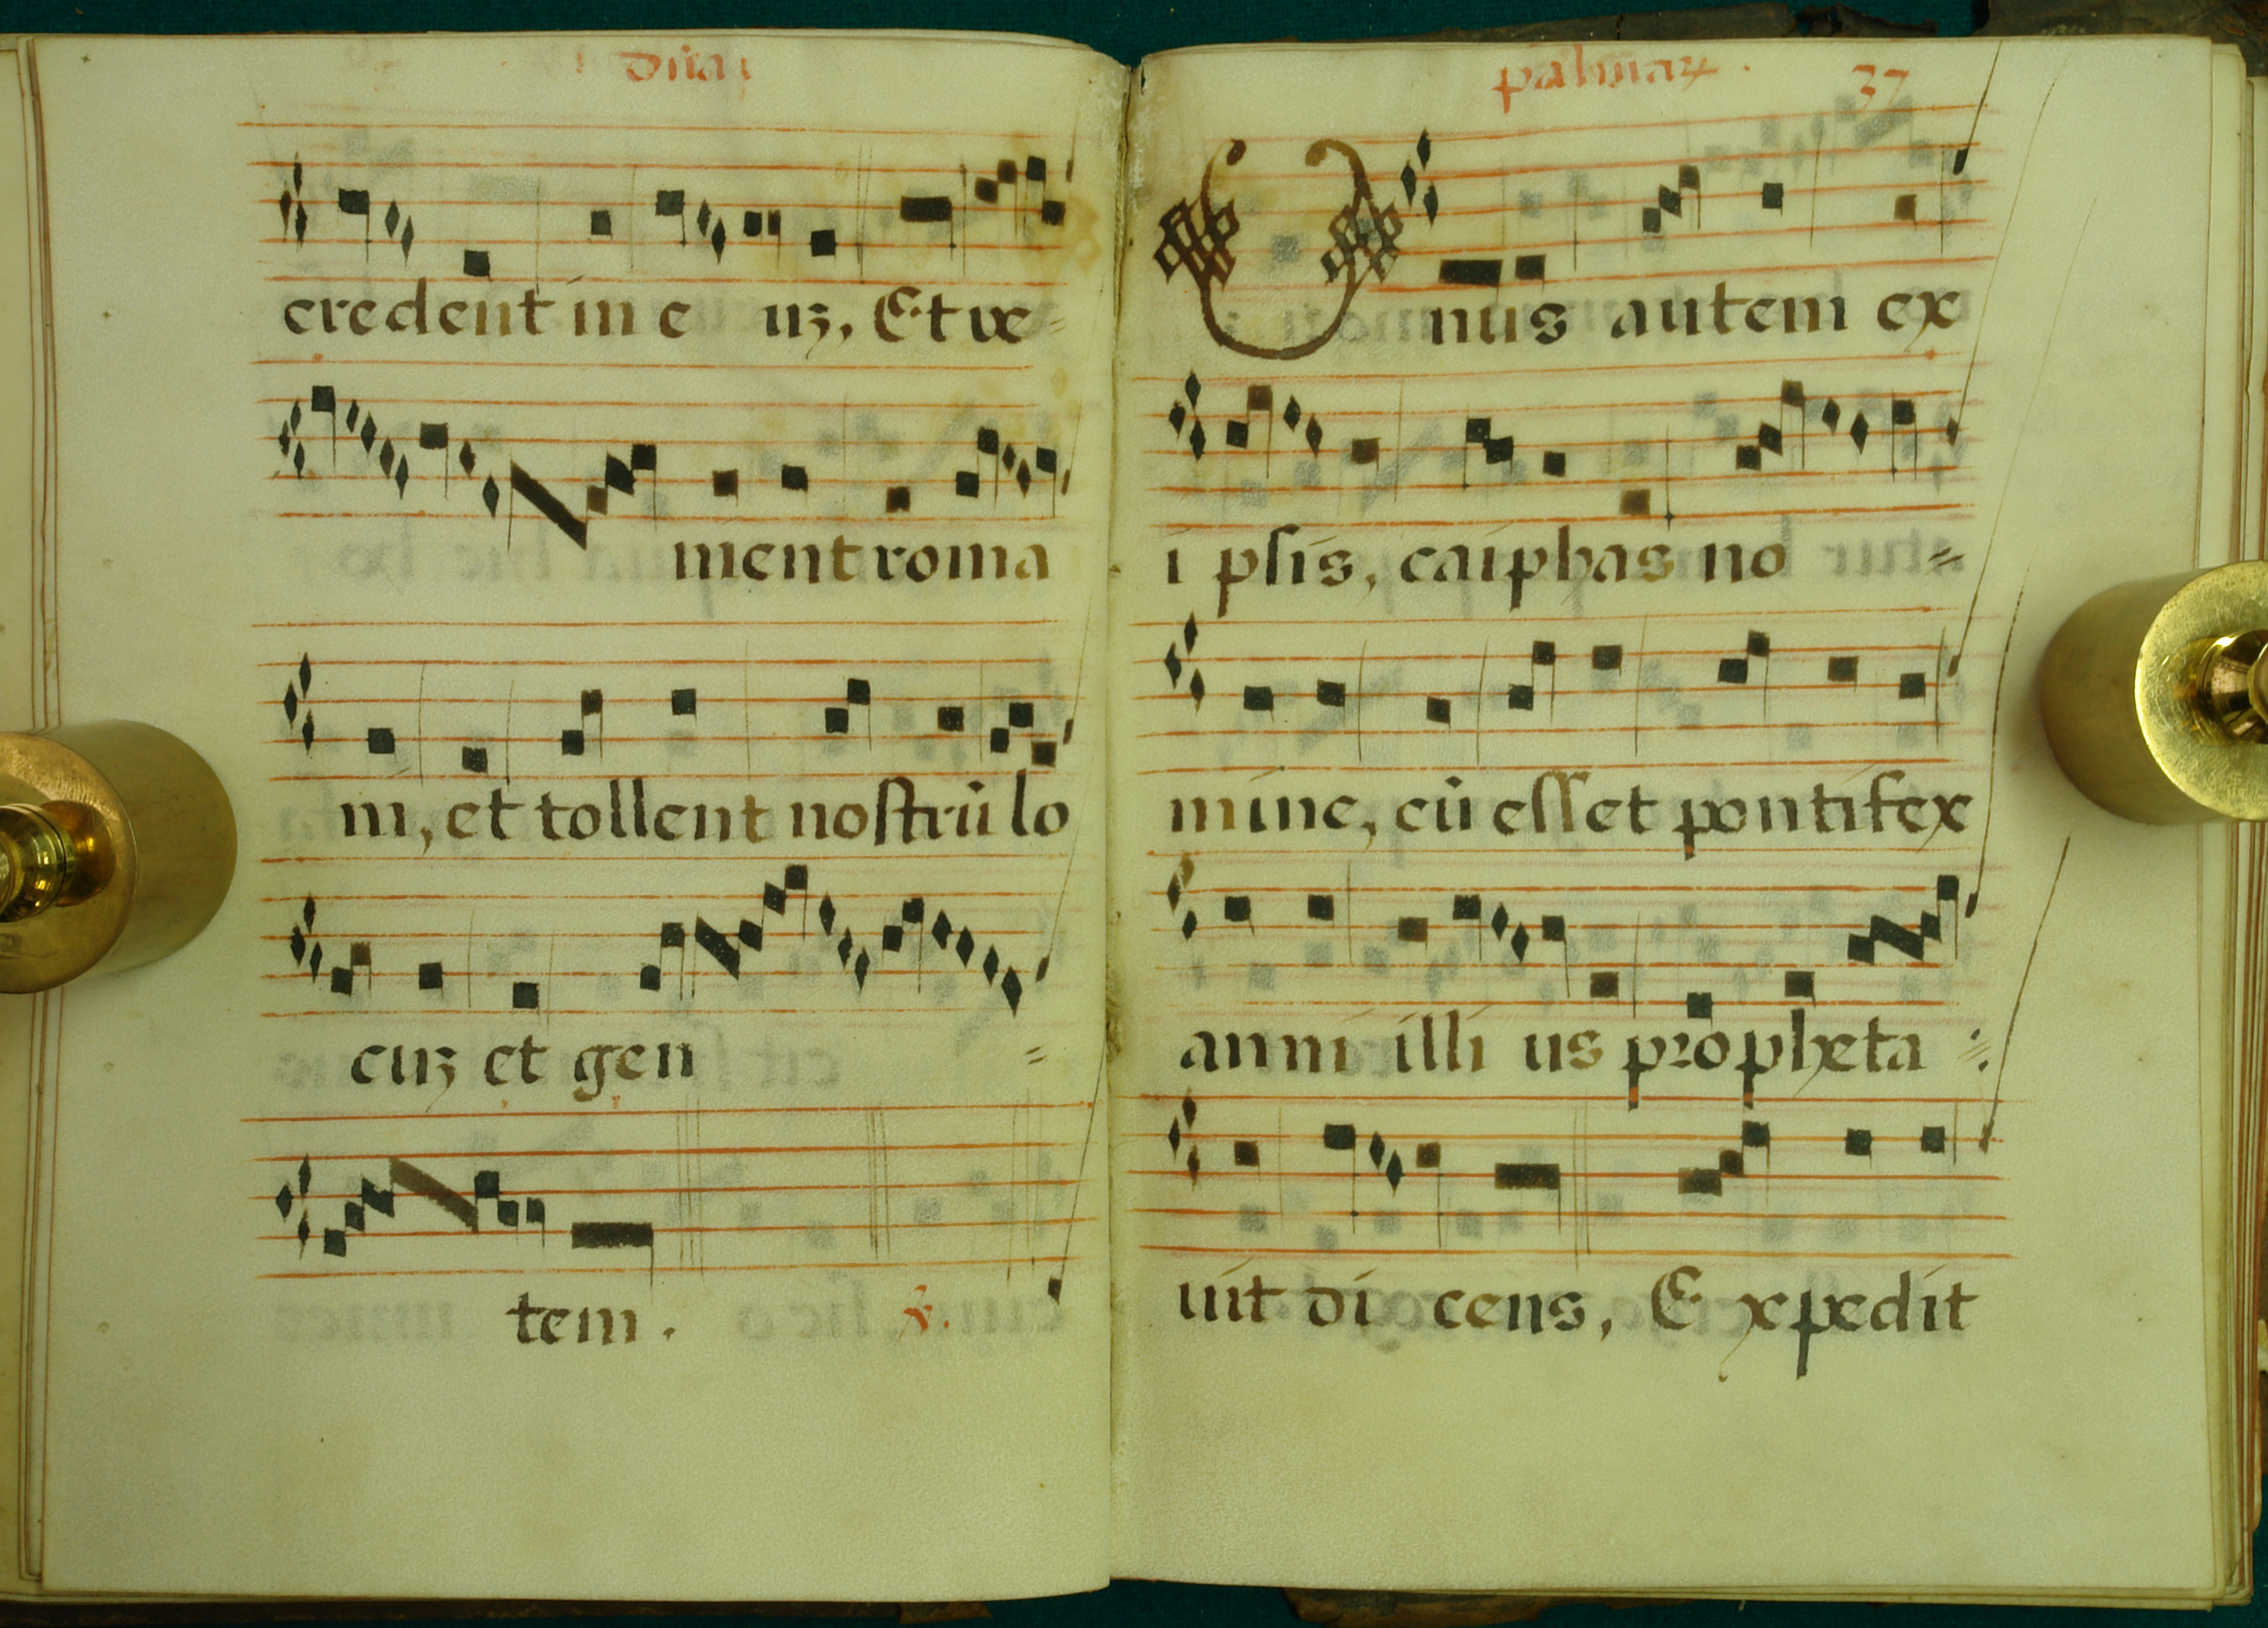 dñica
credent in e uʒ. Et ve=
ment roma
ni, et tollent nostrũ lo
cuʒ et gen =
tem. ℣.
palmaꝝ. 37
Unus autem ex
i psis, caiphas no =
mine, cũ esset pontifex
anni illi us propheta =
uit di cens, E xpedit